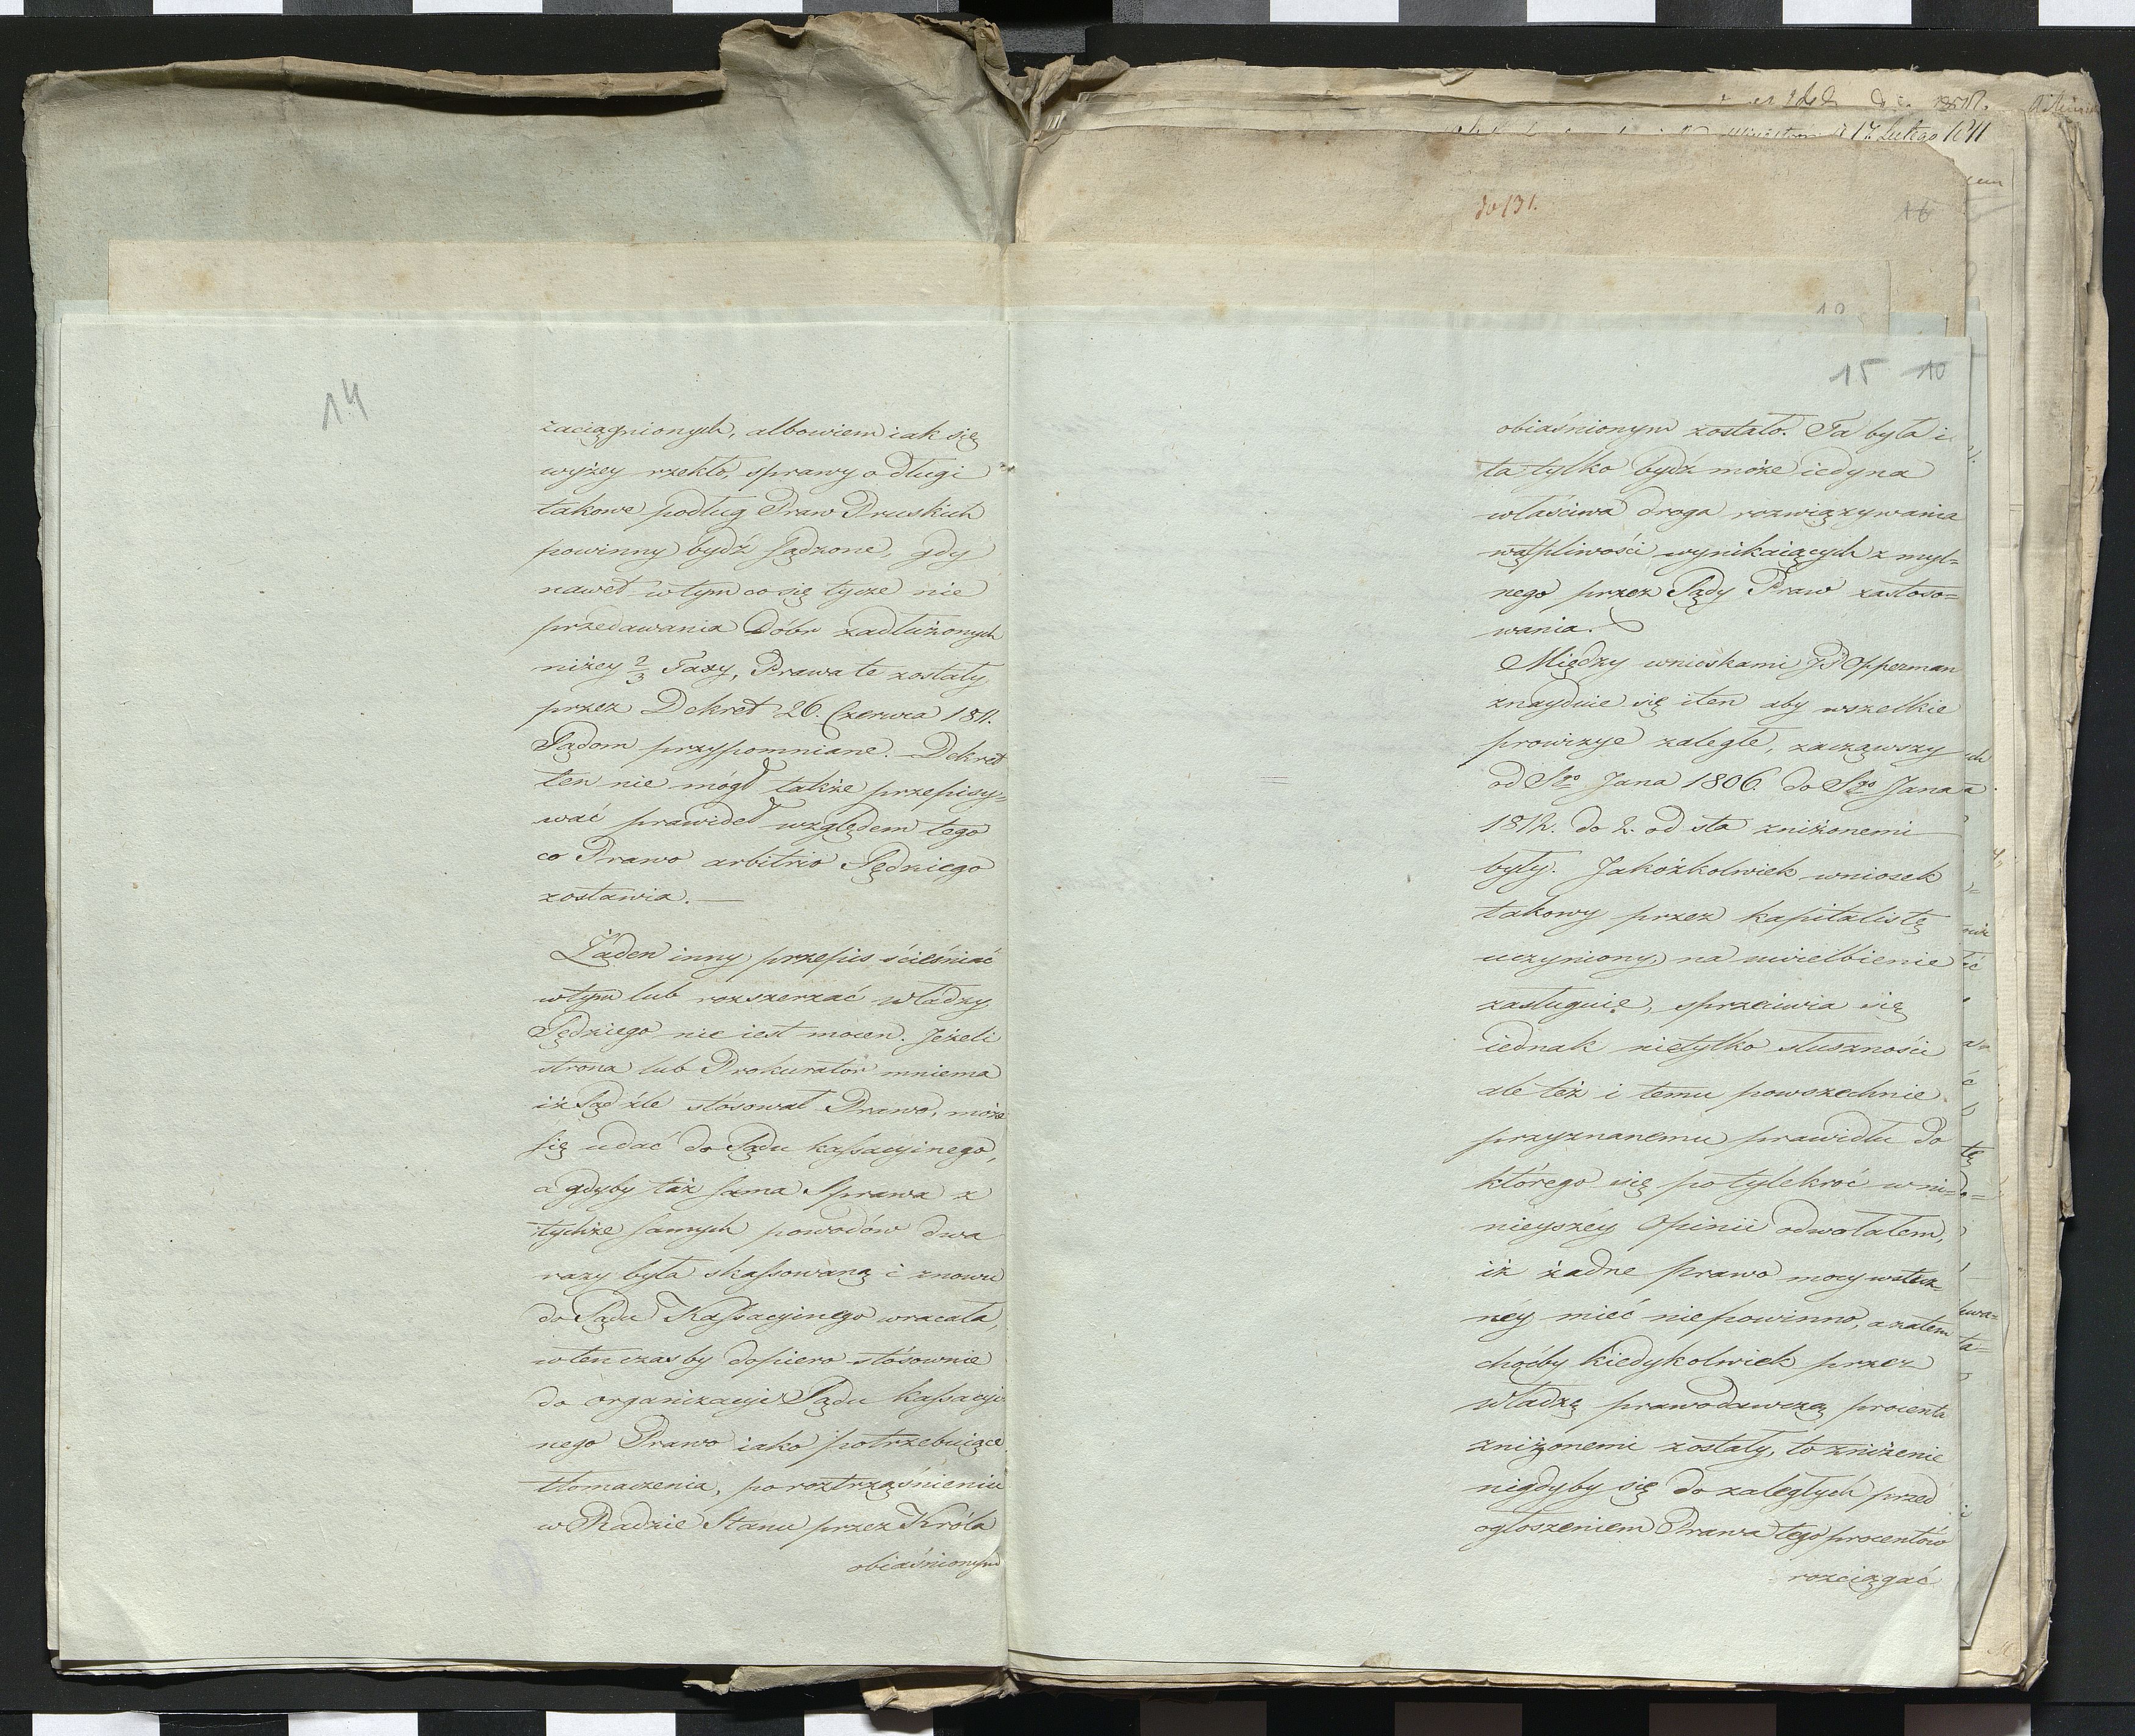 14
zaciągnionych, albowiem iak się
wyżey rzekło, sprawy o długi
takowe podług Praw Pruskich
powinny bydź sądzone, gdy
nawet w tym co się tycze nie
przedawania Dóbr zadłużonych
niżey 2/3 Taxy, Prawa te zostały
przez Dekret 26. Czerwca 1811.
Sądom przypomniane. Dekret
ten nie mógł także przepisy=
wać prawideł względem tego
co Prawo arbitrio Sędziego
zostawia. —
Żaden inny przepis ścieśniać
w tym lub rozszerzać władzy
Sędziego nie iest mocen. Jeżeli
strona lub Prokurator mniema
iż Sąd źle stósował Prawo, może
się udać do Sądu kassacyinego,
a gdyby taż sama Sprawa z
tychże samych powodów dwa
razy była skassowaną i znowu
do Sądu Kassacyinego wracała,
w ten czas by dopiero stósownie
do organizacyi Sądu kassacyi
nego Prawo iako potrzebuiące
tłomaczenia, po roztrząśnieniu
w Radzie Stanu przez Króla
obiaśnionym
17. Lutego 1811
do 131.
16
15 10
obiaśnionym zostało. Ta była i
ta tylko bydź może iedyna
właściwa droga rozwiązywania
wątpliwości wynikaiących z myl=
nego przez Sądy Praw zastoso=
wania.
Między wnioskami JP Opperman
znayduie się i ten aby wszelkie
prowizye zaległe, zacząwszy
od Sgo Jana 1806. do Sgo Jana
1812. do 2. od sta zniżonemi
były. Jakożkolwiek wniosek
takowy przez kapitalistę
uczyniony, na uwielbienie
zasługuie, sprzeciwia się
iednak nietylko słuszności
ale też i temu powszechnie
przyznanemu prawidłu do
którego się po tylekroć w ni=
nieyszéy Opinii odwołałem,
iż żadne prawo mocy wstecz=
néy mieć niepowinno, a zatem
choćby kiedykolwiek przez
władzę prawodawczą procenta
zniżonemi zostały, to zniżenie
nigdyby się do zaległych przed
ogłoszeniem Prawa tego procentów
rozciągać